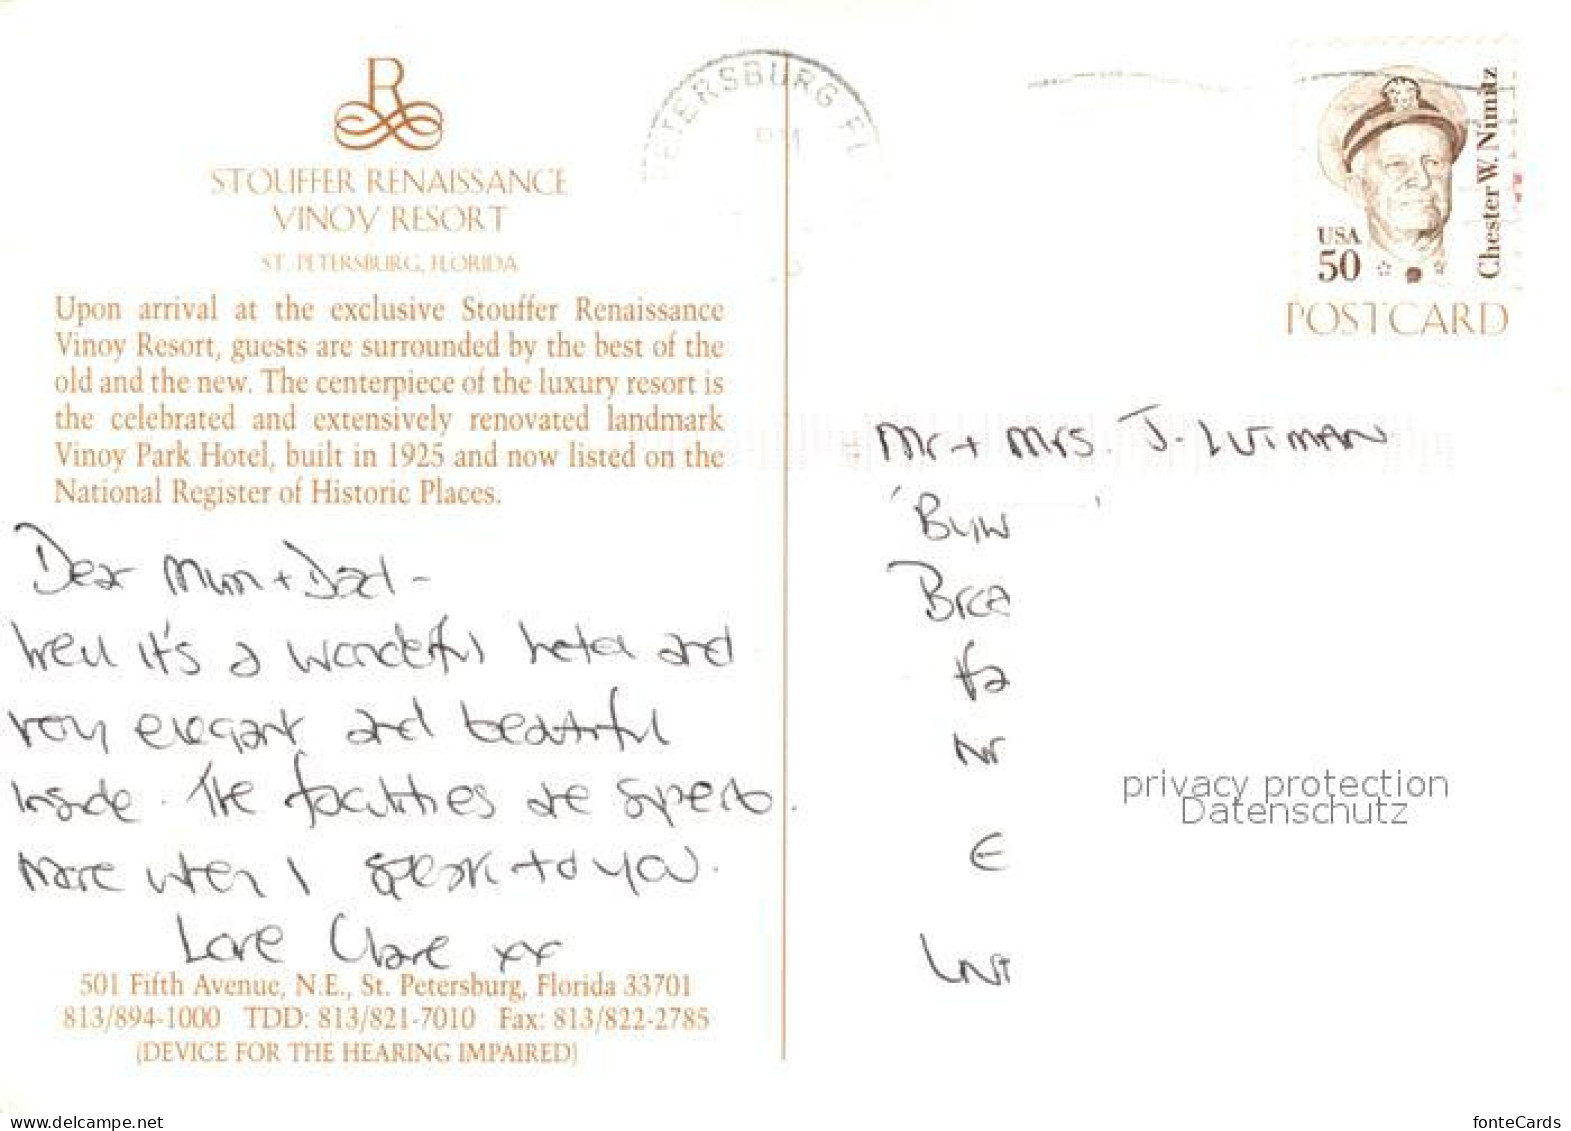 R
STOUFFER RENAISSANCE
VINOY RESORT
ST. PETERSBURG, FLORIDA
Upon arrival at the exclusive Stouffer Renaissance
Vinoy Resort, guests are surrounded by the best of the
old and the new. The centerpiece of the luxury resort is
the celebrated and extensively renovated landmark
Vinoy Park Hotel, built in 1925 and now listed on the
National Register of Historic Places.
Dear Mum + Dad -
Well it's a wonderful hotel and
very elegant and beautiful
inside. The facilities are superb.
More when I speak to you.
Love Clare xx
501 Fifth Avenue, N.E., St. Petersburg, Florida 33701
813/894-1000 TDD: 813/821-7010 Fax: 813/822-2785
(DEVICE FOR THE HEARING IMPAIRED)
PETERSBURG FL
PM
USA
50
Chester W. Nimitz
POSTCARD
Mr + Mrs. J. LUTMAN
privacy protection
Datenschutz
www.delcampe.net
fonteCards